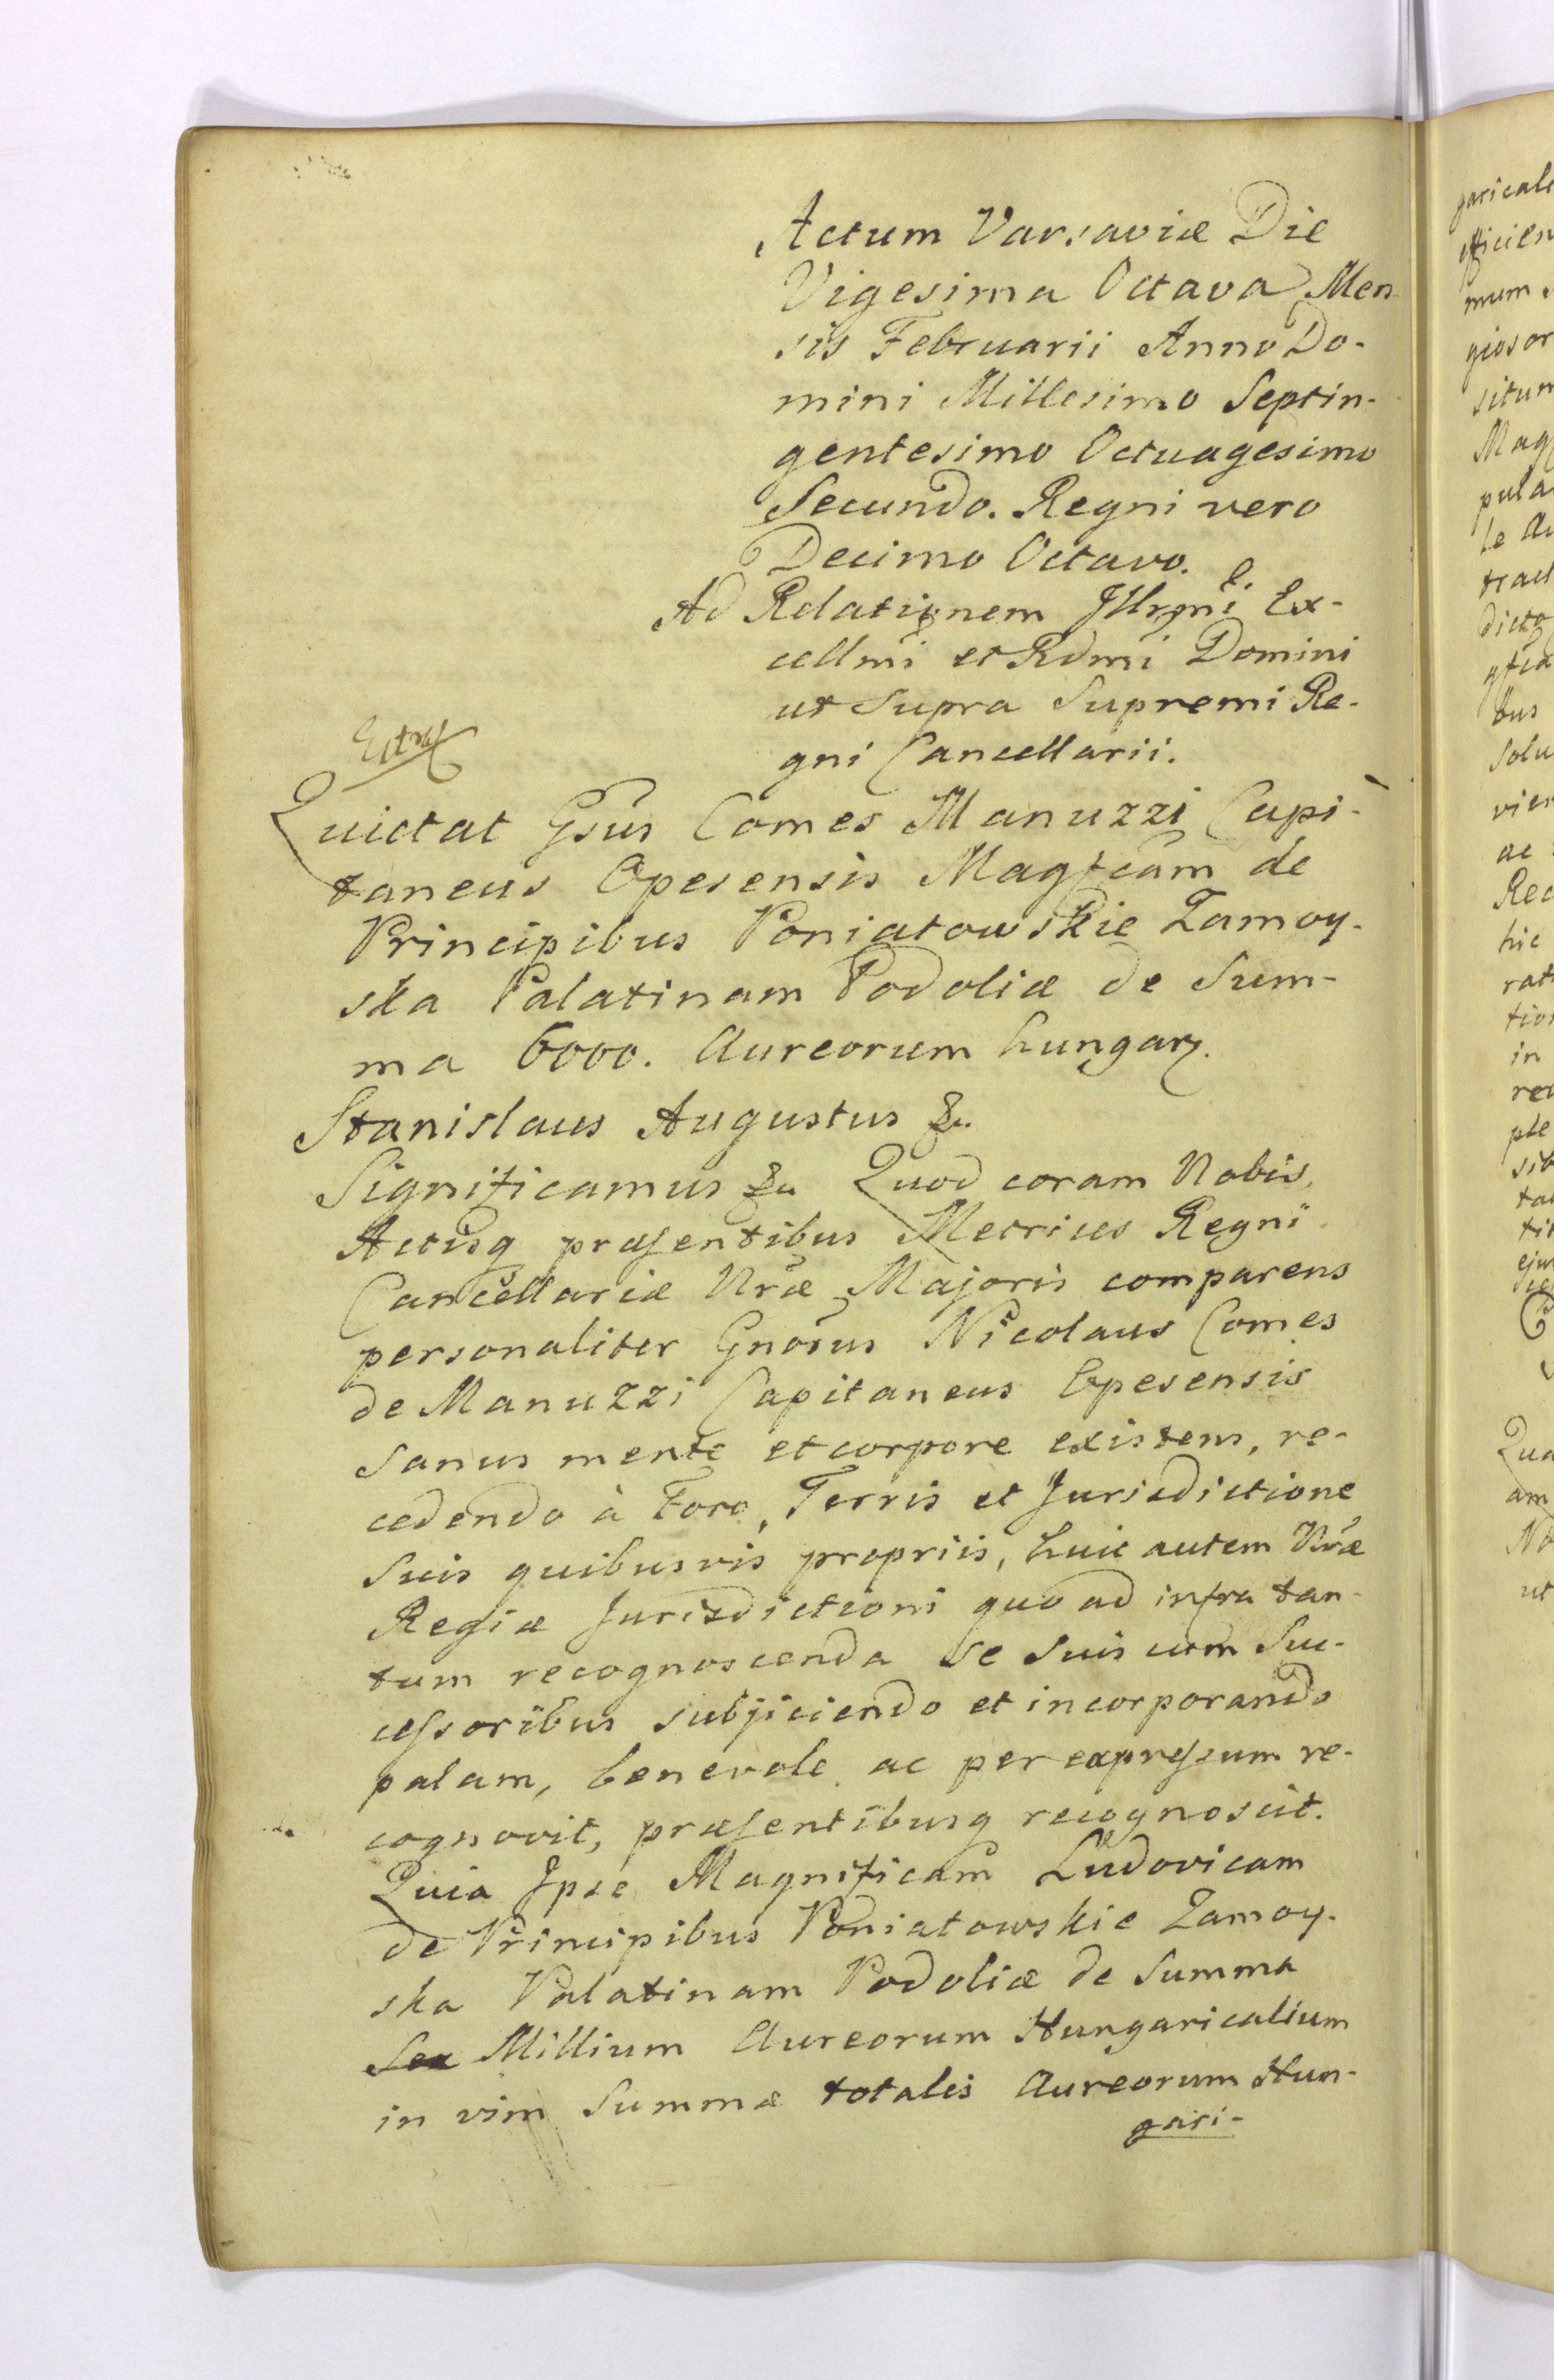 Actum Varsaviæ Die
Vigesima Octava Men-
sis Februarii Anno Do-
mini Millesimo Septin-
gentesimo Octuagesimo
Secundo. Regni vero
Decimo Octavo.
Ad Relationem Illrmi Ex-
cellmi et Rdmi Domini
ut Supra Supremi Re-
gni Cancellarii.
Quictat Gsus Comes Manuzzi Capi-
taneus Opesensis Magfcam de
Principibus Poniatowskie Zamoy-
ska Palatinam Podoliæ de Sum-
ma 6000. Aureorum hungar.
Stanislaus Augustus &c.
Significamus &c. Quod coram Nobis,
Actisq præsentibus Metrices Regni
Cancellariæ Nræ Majoris comparens
personaliter Gnosus Nicolaus Comes
de Manuzzi Capitaneus Opesensis
sanus mente et corpore existens, re-
cedendo à Foro, Terris et Jurisdictione
Suis quibusvis propriis, huic autem Nræ
Regiæ Jurisdictioni quo ad infra tan-
tum recognoscenda se suis cum Suc-
cessoribus subjiciendo et incorporando
palam, benevole ac per expressum re-
cognovit, præsentibusq recognoscit.
Quia Ipse Magnificam Ludovicam
de Principibus Poniatowskie Zamoy-
ska Palatinam Podoliæ de Summa
Sex Millium Aureorum Hungaricalium
in vim Summæ totalis Aureorum Hun-
gari-